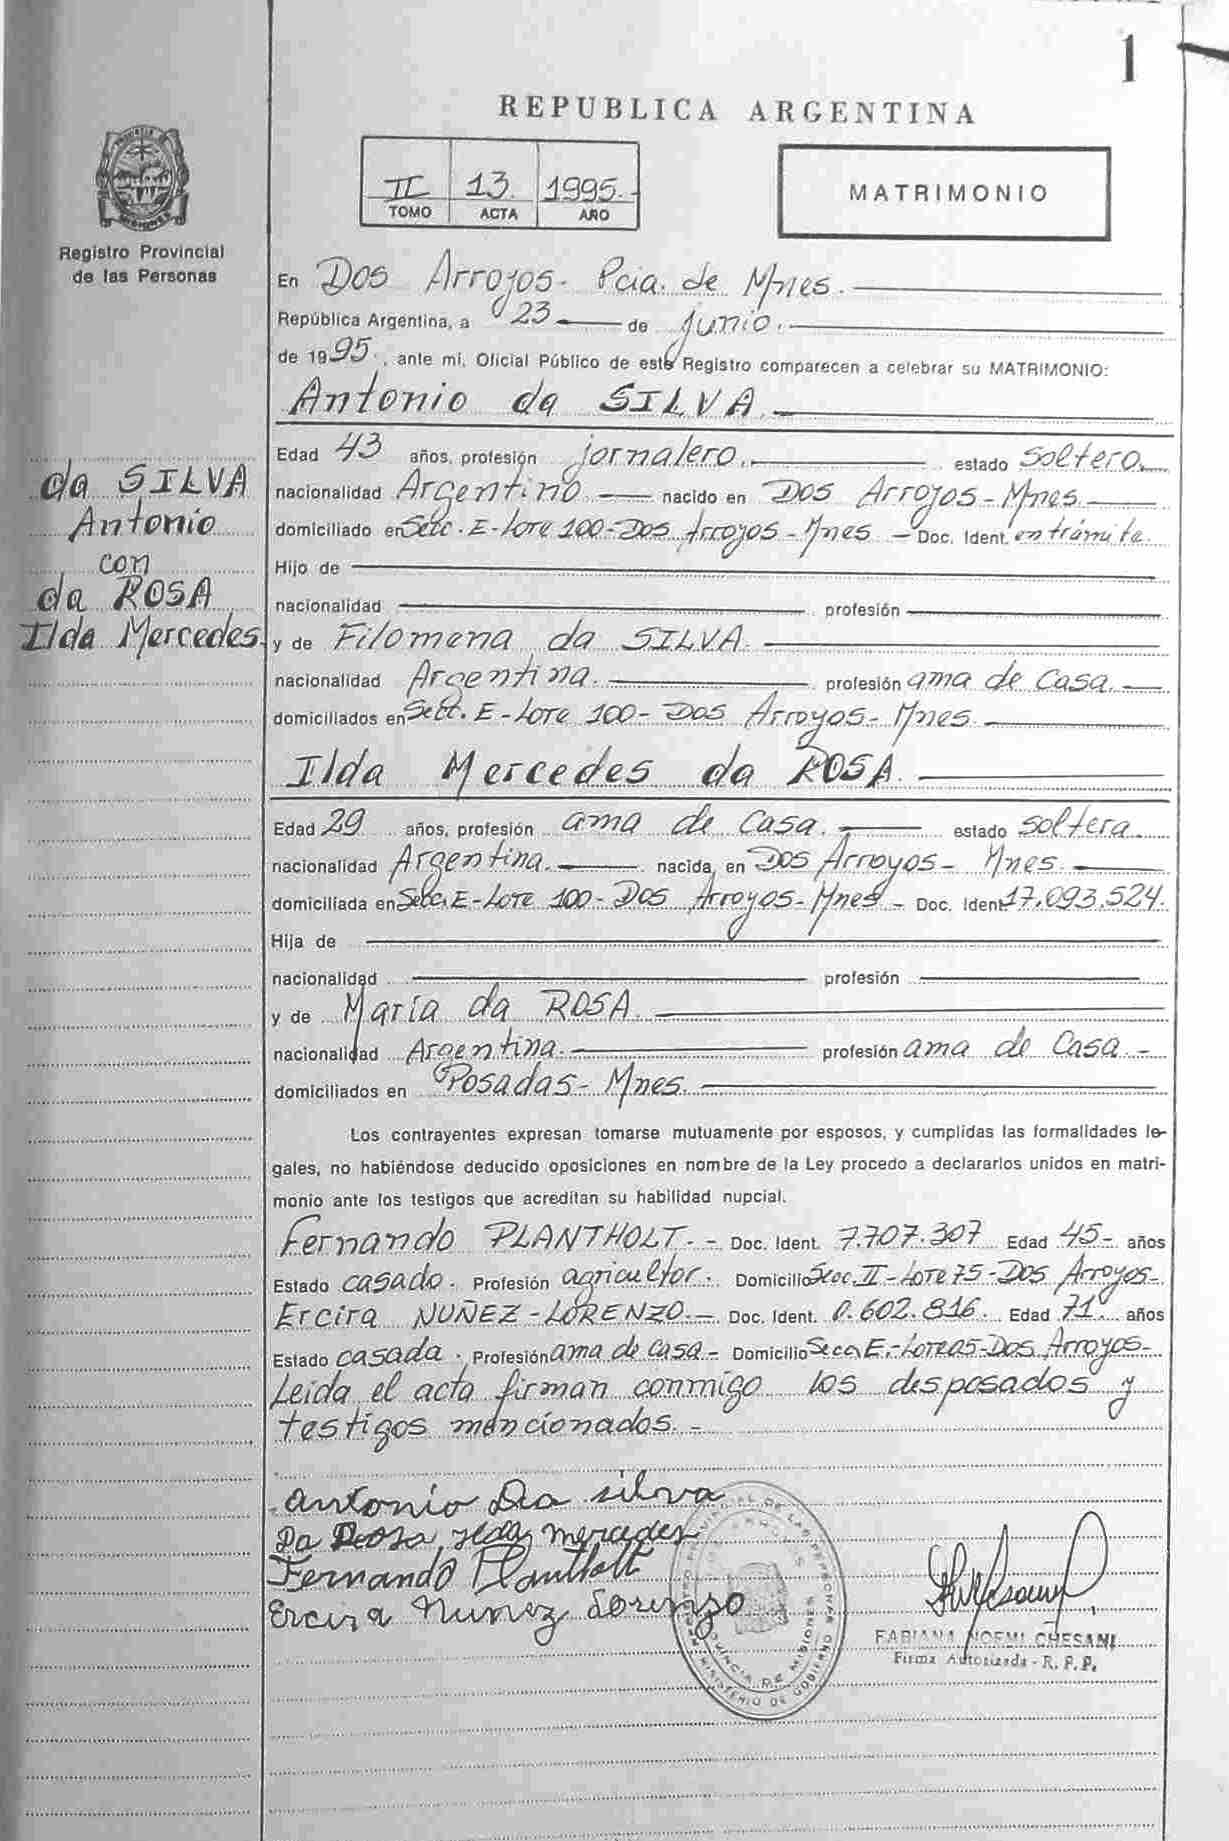 1
REPUBLICA ARGENTINA
II 13. 1995.-
TOMO ACTA AÑO
MATRIMONIO
Registro Provincial
de las Personas
da SILVA
Antonio
con
da ROSA
Ilda Mercedes.
En Dos Arroyos- Pcia. de Mnes.
República Argentina, a 23 de junio.
de 1995., ante mi, Oficial Público de este Registro comparecen a celebrar su MATRIMONIO:
Antonio da SILVA.
Edad 43 años, profesión jornalero. estado soltero.
nacionalidad Argentino nacido en Dos Arroyos-Mnes.
domiciliado en Secc. E-Lote 100-Dos Arroyos-Mnes - Doc. Ident. en trámite.
Hijo de
nacionalidad profesión
y de Filomena da SILVA.
nacionalidad Argentina. profesión ama de casa.
domiciliados en Secc. E-Lote 100-Dos Arroyos-Mnes.
Ilda Mercedes da ROSA.
Edad 29 años, profesión ama de casa. estado soltera.
nacionalidad Argentina. nacida en Dos Arroyos- Mnes.
domiciliada en Secc. E-Lote 100-Dos Arroyos-Mnes - Doc. Ident. 17.093.524.
Hija de
nacionalidad profesión
y de María da ROSA.
nacionalidad Argentina. profesión ama de casa.-
domiciliados en Posadas-Mnes.
Los contrayentes expresan tomarse mutuamente por esposos, y cumplidas las formalidades le-
gales, no habiéndose deducido oposiciones en nombre de la Ley procedo a declararlos unidos en matri-
monio ante los testigos que acreditan su habilidad nupcial.
Fernando PLANTHOLT.- Doc. Ident. 7.707.307 Edad 45- años
Estado casado. Profesión agricultor. Domicilio Secc. II-Lote 75-Dos Arroyos-
Ercira NUÑEZ-LORENZO.- Doc. Ident. 0.602.816. Edad 71. años
Estado casada. Profesión ama de casa- Domicilio Secc. E.-Lote 05-Dos Arroyos-
Leida el acta firman conmigo los desposados y
testigos mencionados.-
Antonio Da silva
Da Rosa ilda mercedes
Fernando Plantholt
Ercira Nuñez Lorenzo
REGISTRO PROVINCIAL DE LAS PERSONAS
PROVINCIA DE MISIONES
MINISTERIO DE GOBIERNO
FABIANA NOEMI CHESANI
Firma Autorizada - R. P. P.